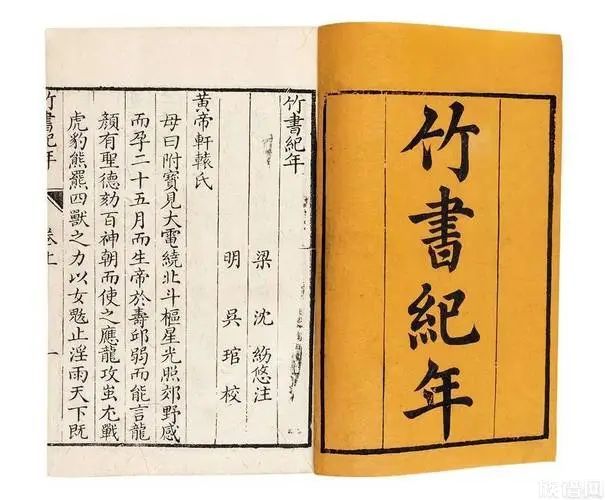 竹書紀年
竹書紀年
梁 沈 約 注
明 吳 琯 校
黃帝軒轅氏
母曰附寶見大電繞北斗樞星光照郊野感
而孕二十五月而生帝於壽邱弱而能言龍
顏有聖德劾百神朝而使之應龍攻蚩尤戰
虎豹熊羆四獸之力以女魃止淫雨天下既
竹書紀年 卷上 一
族谱网